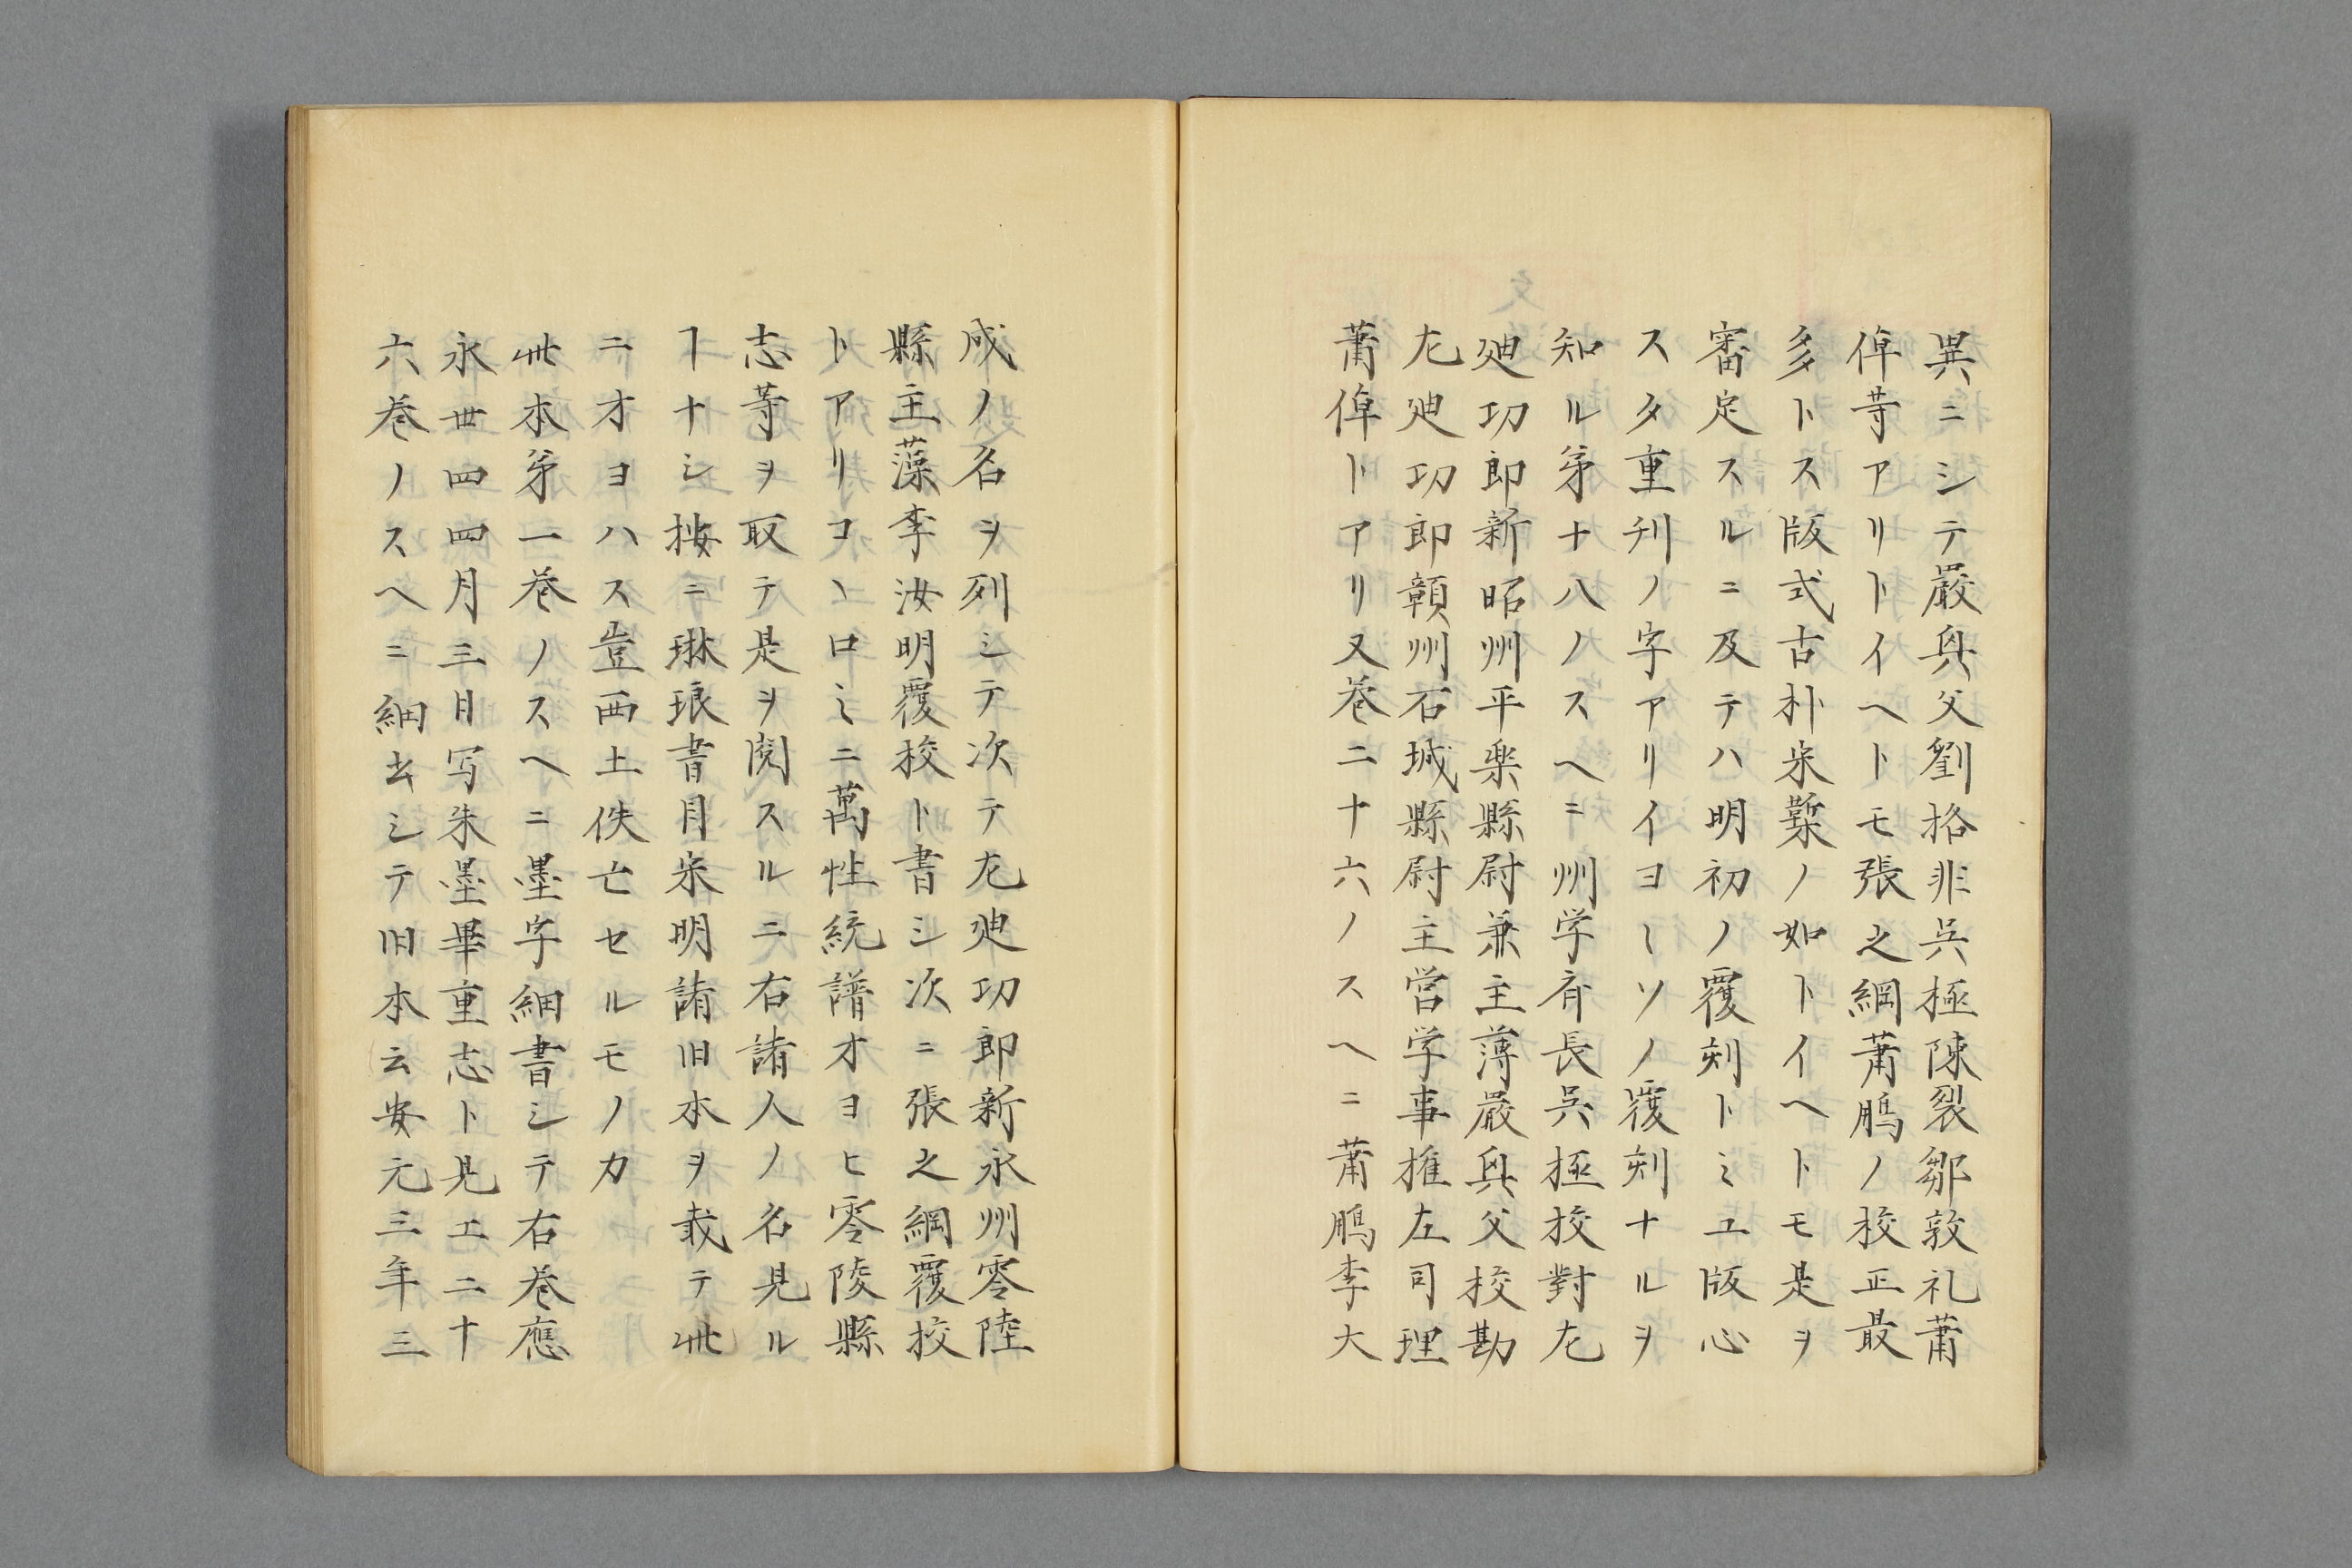 異ニシテ嚴㒷父劉格非呉極陳裂鄒敦礼蕭
倬等アリトイヘトモ張之綱蕭鵰ノ校正最
多トス版式古朴宋槧ノ如トイヘトモ是ヲ
審定スルニ及テハ明初ノ覆刻トミユ版心
スタ重刊ノ字アリイヨ〱ソノ覆刻ナルヲ
知ル第十八ノスヘニ州学斉長呉極校對尢
廸功郎新昭州平楽縣尉兼主薄嚴㒷父校勘
尢廸功郎贑州石城縣尉主営学事搉左司理
蕭倬トアリ又巻二十六ノスヘニ蕭鵰李大
成ノ名ヲ列シテ次テ尢廸功郎新永州零陸
縣主藻李汝明覆校ト書シ次ニ張之綱覆校
トアリコヽロミニ萬性統譜オヨヒ零陵縣
志等ヲ取テ是ヲ閲スルニ右諸人ノ名見ル
ヿナシ按ニ琳琅書目宋明諸旧本ヲ載テ此
ニオヨハス豈西土佚亡セルモノカ
此本第一巻ノスヘニ墨字細書シテ右巻應
永丗四四月三日写朱墨畢重志ト見エ二十
六巻ノスヘニ細去シテ旧本云安元三年三